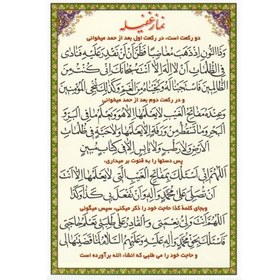 نماز غفیله
دو رکعت است، در رکعت اول بعد از حمد میخوانی
وَذَا النُّونِ إِذْ ذَهَبَ مُغَاضِبًا فَظَنَّ أَنْ لَنْ نَقْدِرَ عَلَيْهِ فَنَادَى
فِي الظُّلُمَاتِ أَنْ لَا إِلَهَ إِلَّا أَنْتَ سُبْحَانَكَ إِنِّي كُنْتُ مِنَ
الظَّالِمِينَ فَاسْتَجَبْنَا لَهُ وَنَجَّيْنَاهُ مِنَ الْغَمِّ وَكَذَلِكَ نُنْجِي الْمُؤْمِنِينَ
و در رکعت دوم بعد از حمد میخوانی
وَعِنْدَهُ مَفَاتِحُ الْغَيْبِ لَا يَعْلَمُهَا إِلَّا هُوَ وَيَعْلَمُ مَا فِي الْبَرِّ وَ
الْبَحْرِ وَمَا تَسْقُطُ مِنْ وَرَقَةٍ إِلَّا يَعْلَمُهَا وَلَا حَبَّةٍ فِي ظُلُمَاتِ
الْأَرْضِ وَلَا رَطْبٍ وَلَا يَابِسٍ إِلَّا فِي كِتَابٍ مُبِينٍ
پس دستها را به قنوت بر میداری،
اللَّهُمَّ إِنِّي أَسْأَلُكَ بِمَفَاتِحِ الْغَيْبِ الَّتِي لَا يَعْلَمُهَا إِلَّا أَنْتَ
أَنْ تُصَلِّيَ عَلَى مُحَمَّدٍ وَآلِهِ وَأَنْ تَفْعَلَ بِي كَذَا وَكَذَا
وبجای کلمهٔ کذا حاجت خود را ذکر میکنی، سپس میگوئی
اللَّهُمَّ أَنْتَ وَلِيُّ نِعْمَتِي وَالْقَادِرُ عَلَى طَلِبَتِي تَعْلَمُ حَاجَتِي
فَأَسْأَلُكَ بِحَقِّ مُحَمَّدٍ وَآلِهِ عَلَيْهِ وَعَلَيْهِمُ السَّلَامُ لَمَّا قَضَيْتَهَا لِي
و حاجت خود را می طلبی که انشاء الله برآورده است